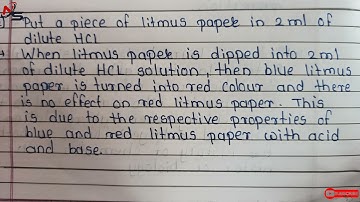 Put a piece of litmus paper in 2 ml of
dilute HCL
When litmus paper is dipped into 2 ml
of dilute HCL solution, then blue litmus
paper is turned into red colour and there
is no effect on red litmus paper. This
is due to the respective properties of
blue and red litmus paper with acid
and base.